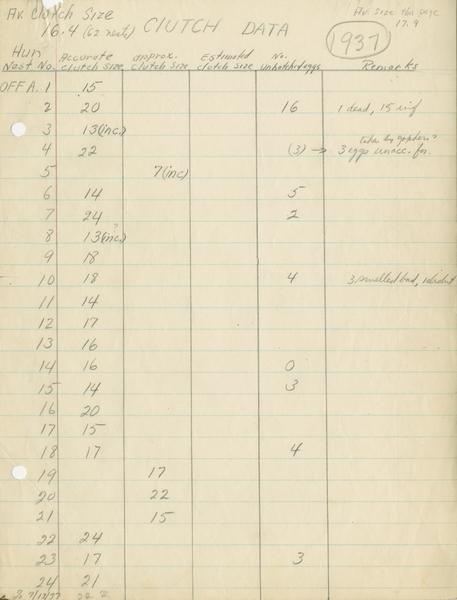 Av. Clutch Size
16.4 (62 nests) CLUTCH DATA
Av. Size this page
17.9
1937
Hun Nest No. Accurate Clutch Size approx. Clutch Size Estimated Clutch Size No. Unhatched eggs Remarks
OFF A. 1 15
2 20 16 1 dead, 15 inf
3 13 (inc.)
4 22 (3) → 3 eggs unacc. for. taken by gophers?
5 7 (inc)
6 14 5
7 24 2
8 13 (inc.) ?
9 18
10 18 4 3 smelled bad,
11 14
12 17
13 16
14 16 0
15 14 3
16 20
17 15
18 17 4
19 17
20 22
21 15
22 24
23 17 3
24 21